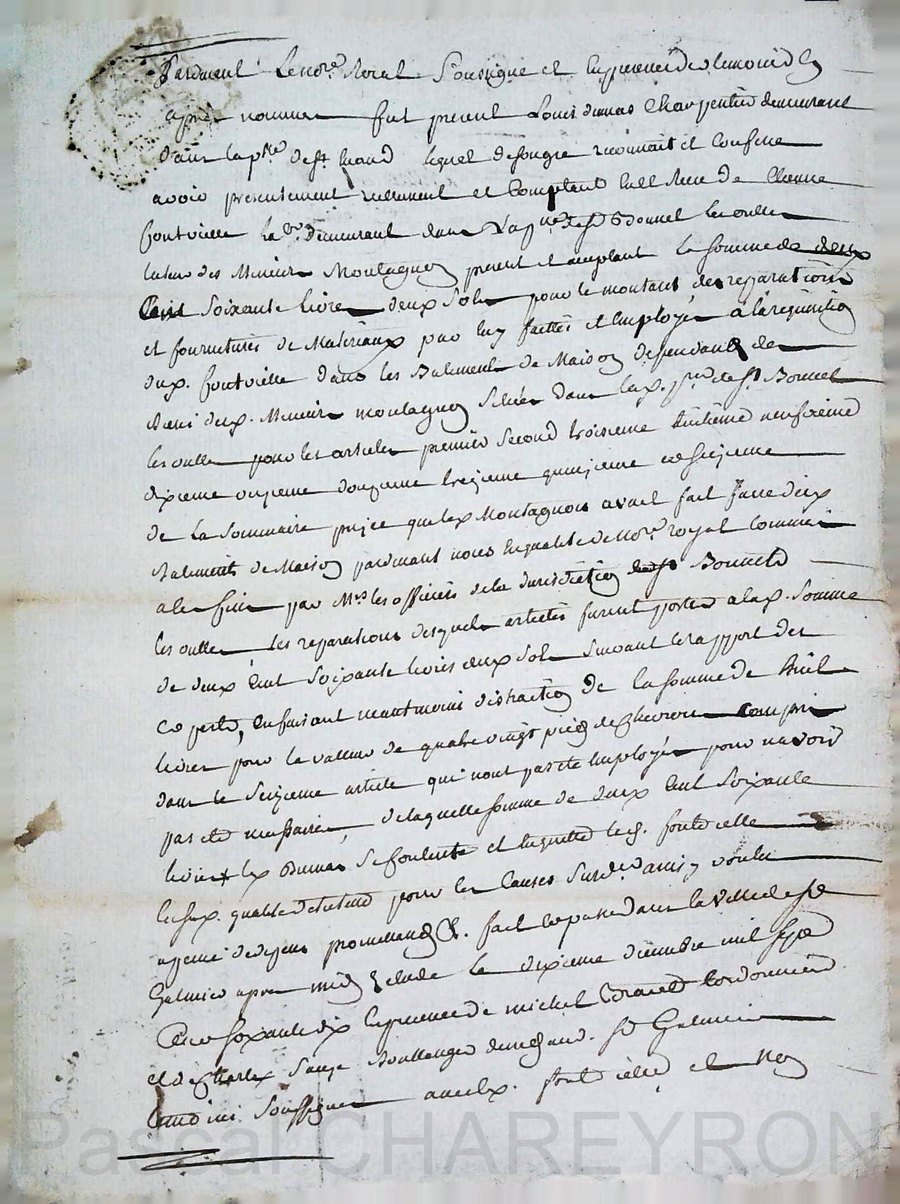 Pardevant Le no.re Royal Soussigné et en presence des temoins cy
après nommes fut present Louis dumas Charpentier demeurant
dans la p.sse de St heand lequel de son gré reconnait et confesse
avoir presentement reellement et Comptant eu et Receu de Etienne
fontvielle lab.r demeurant dans la p.sse de St Bonnet les oulles
tuteur des Mineurs Montagnon present et acceptant la somme de deux
Cent Soixante livres deux Sols pour le montant des reparations
et fournitures de Materiaux par luy faittes et Employés a la requisition
dud. fontvielle dans les Batiments de Maison dependants des
biens desd. Mineurs montagnon Situés dans lad. p.sse de St Bonnet
les oulles pour les articles premier Second troisieme huitieme neufvieme
dixieme onzieme douzieme treizieme quinzieme et seizieme
de La Sommaire prise que led. Montagnon avait fait faire desd.
Batiments de Maison pardevant nous en qualité de no.re royal Commis
a la fin par M.rs les officiers de la Jurisdiction de St Bonnet
les oulles, les reparations desquels articles furent portés a lad. Somme
de deux Cent Soixante livres deux Sols Suivant le rapport des
experts, en faisant neantmoins distraction de la somme de huit
livres pour la valleur de quatre vingt pieds de chevrons compris
dans le Seizieme article qui n'ont pas eté Employés pour n'avoir
pas eté necessaires, de laquelle somme de deux Cent Soixante
livres led. Dumas Se contente et en quitte led. fontvielle
led. qualité et tous pour les Causes Susd. ainsy voulu
promettant &. fait et passé dans la ville de St
Galmier apres midy le dixieme decembre mil sept
Cent soixante dix En presence de michel Cordonnier
et de Charles Sauze Boullanger demeurant St Galmier
temoins Soussignés avec led. fontvielle et Non
Pascal CHAREYRON